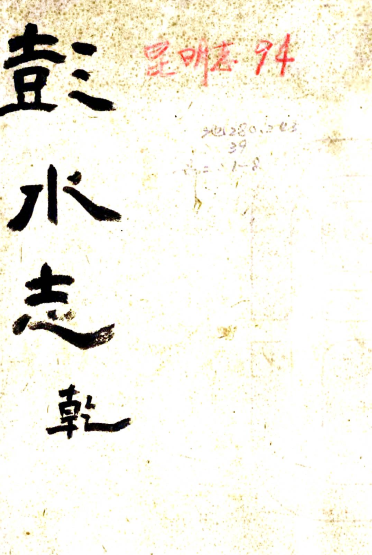 彭水志
乾
昆明志 94
地280.243
39
1-8